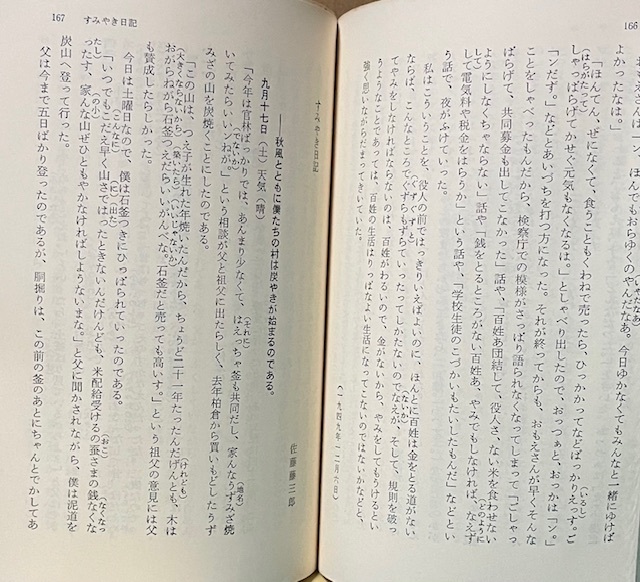 166
よかったなは。」
「ほんでん、ぜになくて、食うこともくわねで売ったら、ひっかかってなどばかりえっす。ご
(はらがたって)
(いろし)
しゃっぱらげてかせぐ元気もなくなるは。」としゃべり出したので、おっつぁと、おっかは「ン。」
「ンだず。」などとあいづちを打つ方になった。それが終ってからも、おもえさんが早くそんな
ことをしゃべったもんだから、検察庁での模様がさっぱり語られなくなってしまって「ごしゃっ
ぱらげて、共同募金も出してこなかった」話や「百姓あ団結して、役人さ、ない米を食わせない
ようにしなくちゃならない」話や「銭をとるところがない百姓あ、やみでもしなければ、なえず
(どのように)
して電気料や税金をはらうか」という話や、「学校生徒のこづかいもたいしたもんだ」などとい
う話で、夜がふけていった。
私はこういうことを、役人の前ではっきりいえばよいのに、ほんとに百姓は金をとる道がない
ならば、こんなところでぐずらもずらていったってしかたないのでなえが、そして、規則を破っ
(ぐずぐずと)
(ないか)
てやみをしなければならないのは、百姓がわるいので、金がないから、やみをしてもうけるとい
うようなことであっては、百姓の生活はりっぱなよい生活になってこないのではないかなどと、
強く思いながらだまってきいていた。
(一九四九・一二月六日)
167 すみやき日記
すみやき日記
佐藤藤三郎
――秋風とともに僕たちの村は炭やきが始まるのである。
九月十七日(土)天気(晴)
「今年は官林ばっかりでは、あんまり少なくて、はえっちゃ釜も共同だし、家んなうずみざ焼
(それに)
(地名)
いてみたらいいんねが。」という相談が父と祖父に出たらしく、去年柏倉から買いもどしたうず
(でないか)
みざの山を炭焼くことにしたのである。
「この山は、つえ子が生れた年焼いたんだから、ちょうど二十一年たったんだげんとも、木は
(けれども)
おがらねがら石釜つえだらいいがんべな。石釜だと売っても高いす。」という祖父の意見には父
(大きくならないから)
(築いたら)
(いいじゃないか)
も賛成したらしかった。
今日は土曜日なので、僕は石釜つきにひっぱられていったのである。
「いつでもこだえ早く山さではったときないんだけんども、米配給受けるの蚕さまの銭なくな
(こんなに)
(に出た)
(おこ)
(なくなっ
ったす、家んな山ぜひともやかなければしようないまな。」と父に聞かされながら、僕は泥道を
たし)
(の小)
炭山へ登って行った。
父は今まで五日ばかり登ったのであるが、胴掘りは、この前の釜のあとにちゃんとでかしてあ